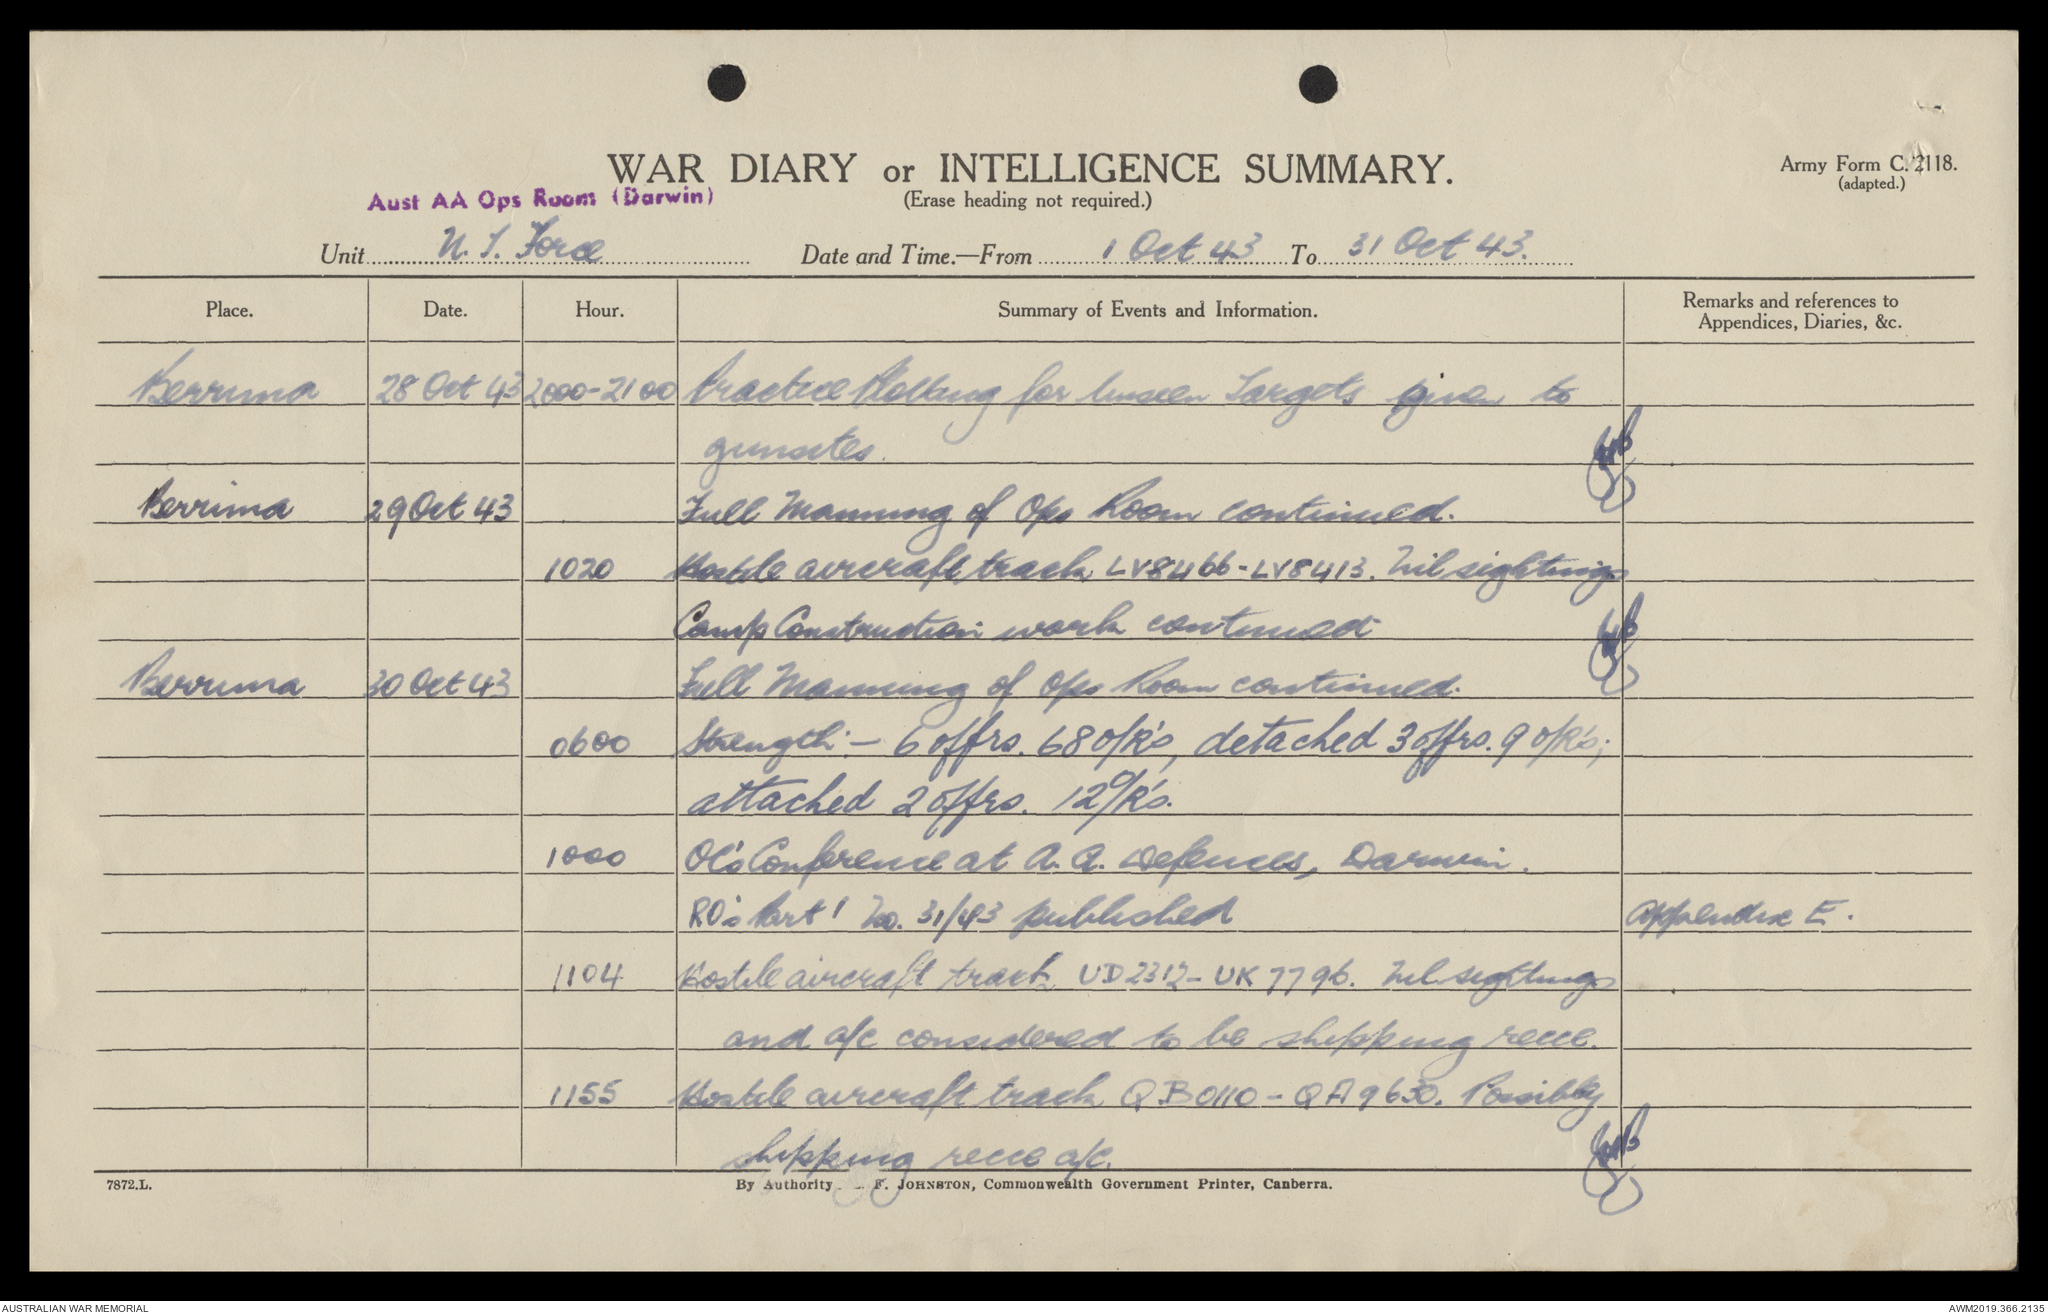 WAR DIARY or INTELLIGENCE SUMMARY.
Army Form C. 2118.
(adapted.)
(Erase heading not required.)
Aust AA Ops Room (Darwin)
Unit N.T. Force Date and Time.—From 1 Oct 43 To 31 Oct 43.
Place. Date. Hour. Summary of Events and Information. Remarks and references to Appendices, Diaries, &c.
Berrima 28 Oct 43 2000-2100 Practice Plotting for Unseen Targets given to
gunsites.
Berrima 29 Oct 43 Full Manning of Ops Room continued.
1020 Hostile aircraft track LV8466-LV8413. Nil sightings
Camp Construction work continued
Berrima 30 Oct 43 Full Manning of Ops Room continued.
0600 Strength:- 6 offrs. 68 O/R's, detached 3 offrs. 9 O/R's;
attached 2 offrs. 12 O/R's.
1000 OC's Conference at A.A. Defences, Darwin.
RO's Part 1 No. 31/43 published Appendix E.
1104 Hostile aircraft track UD2312-UK7796. Nil sightings
and a/c considered to be shipping recce.
1155 Hostile aircraft track QB0110-QA9630. Possibly
shipping recce a/c.
7872.L.
By Authority F. JOHNSTON, Commonwealth Government Printer, Canberra.
AUSTRALIAN WAR MEMORIAL
AWM2019.366.2135